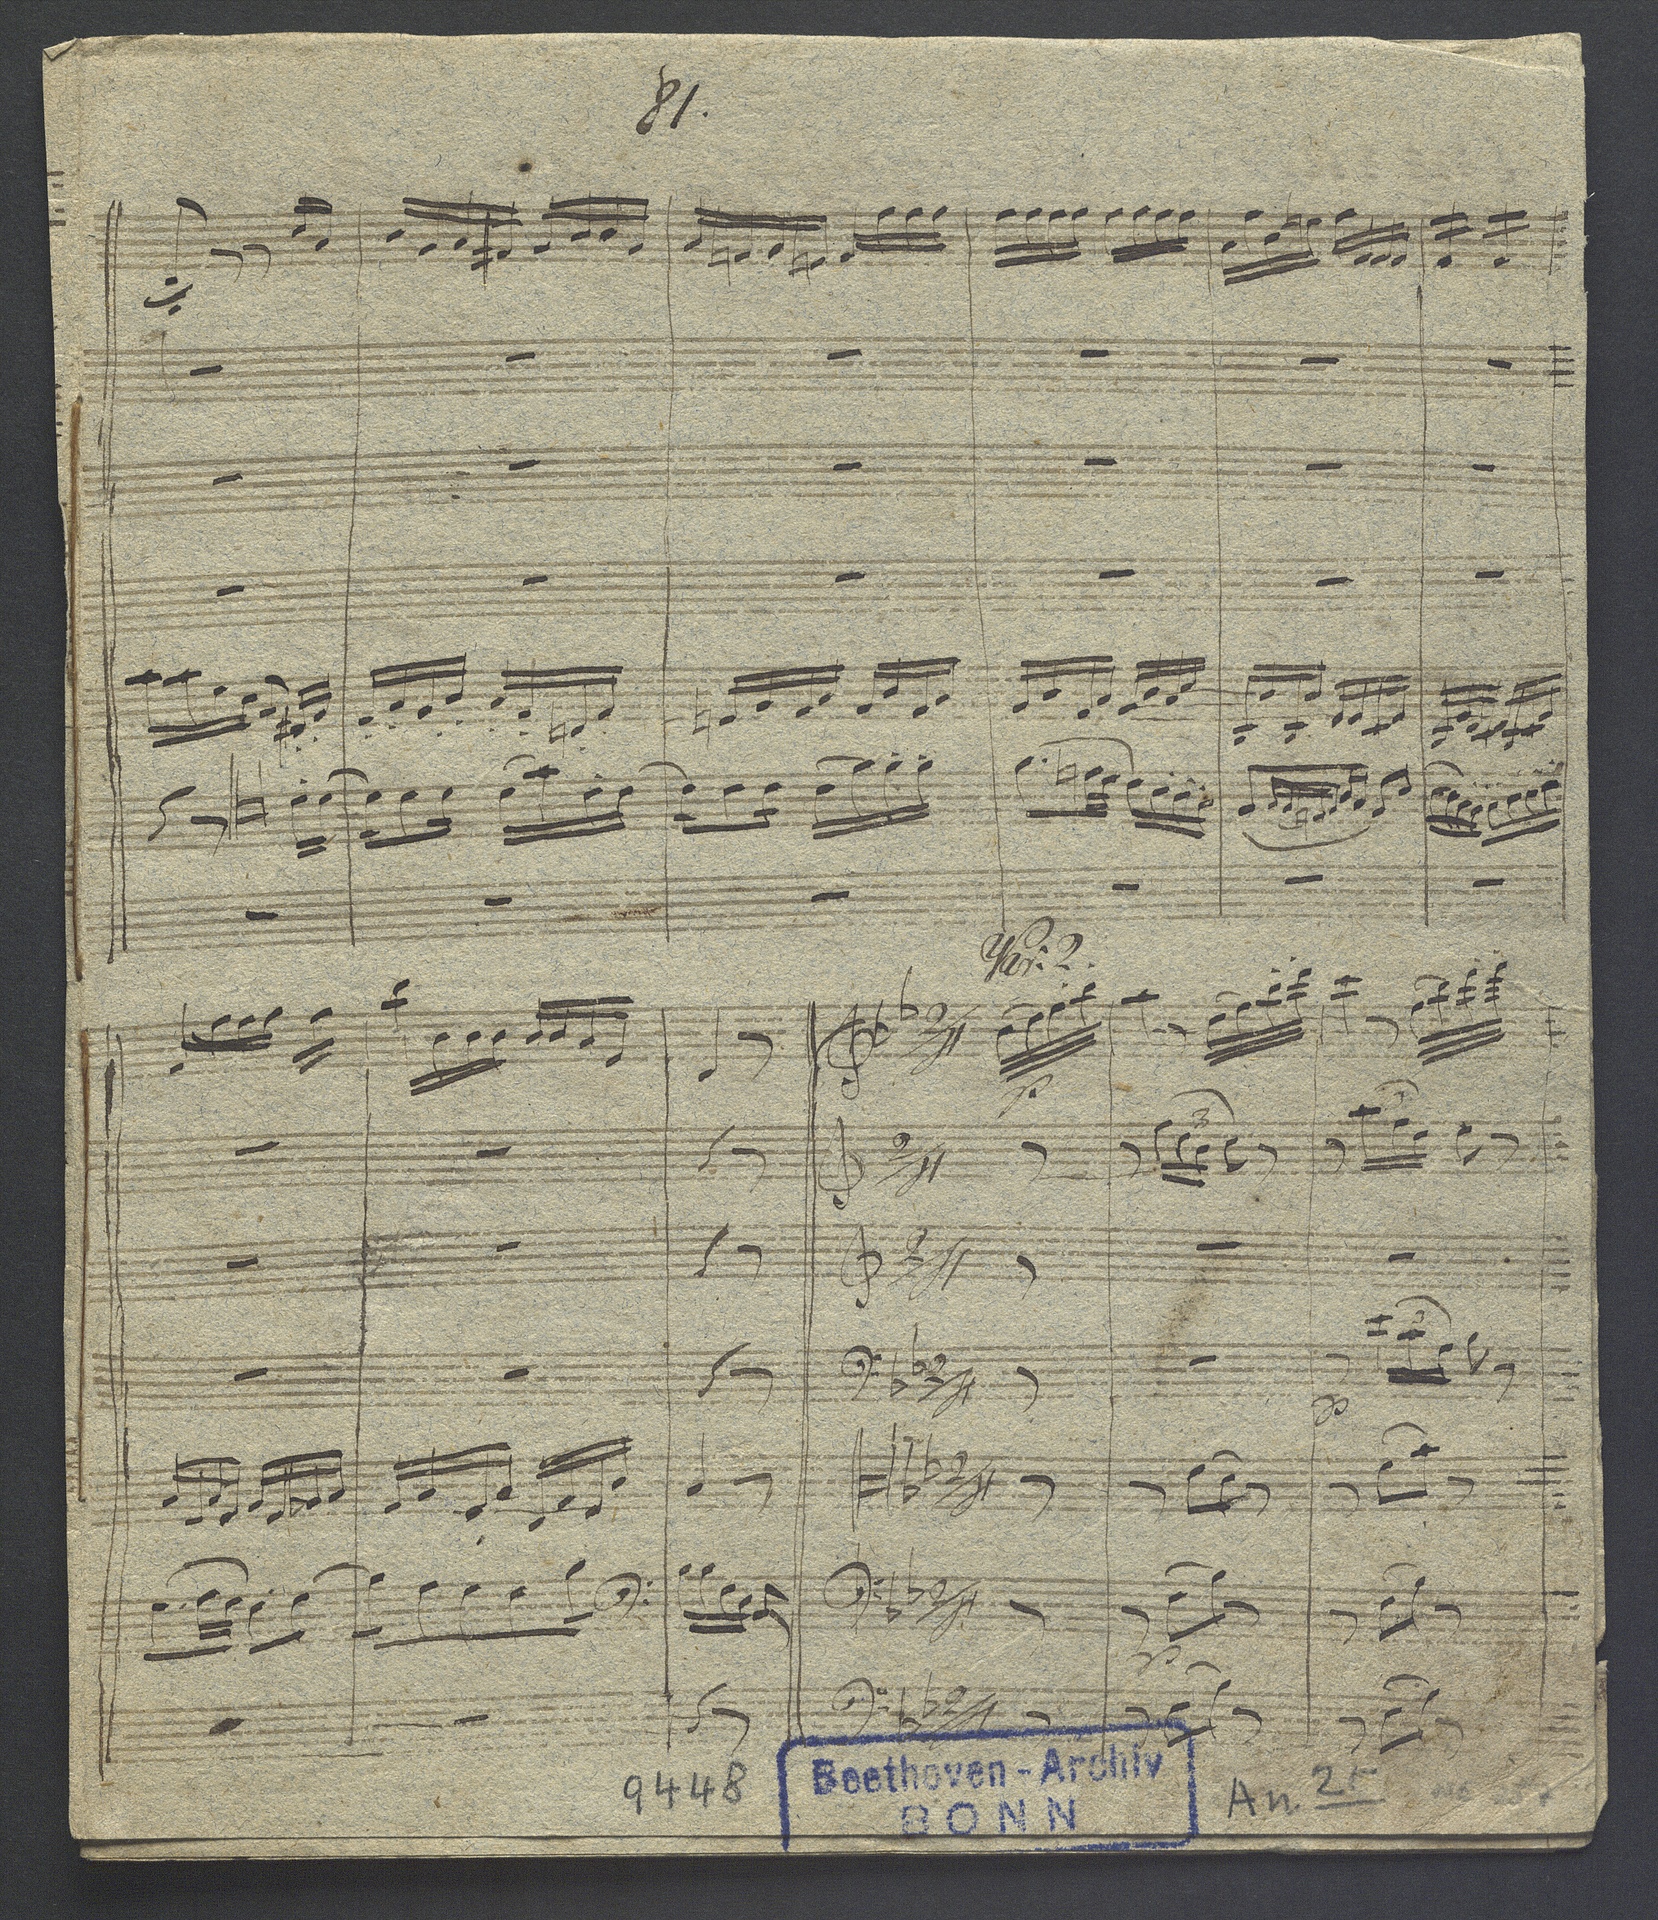 81.
Var: 2.
p
3
3
3
p
p
9448
Beethoven-Archiv
BONN
An. 25